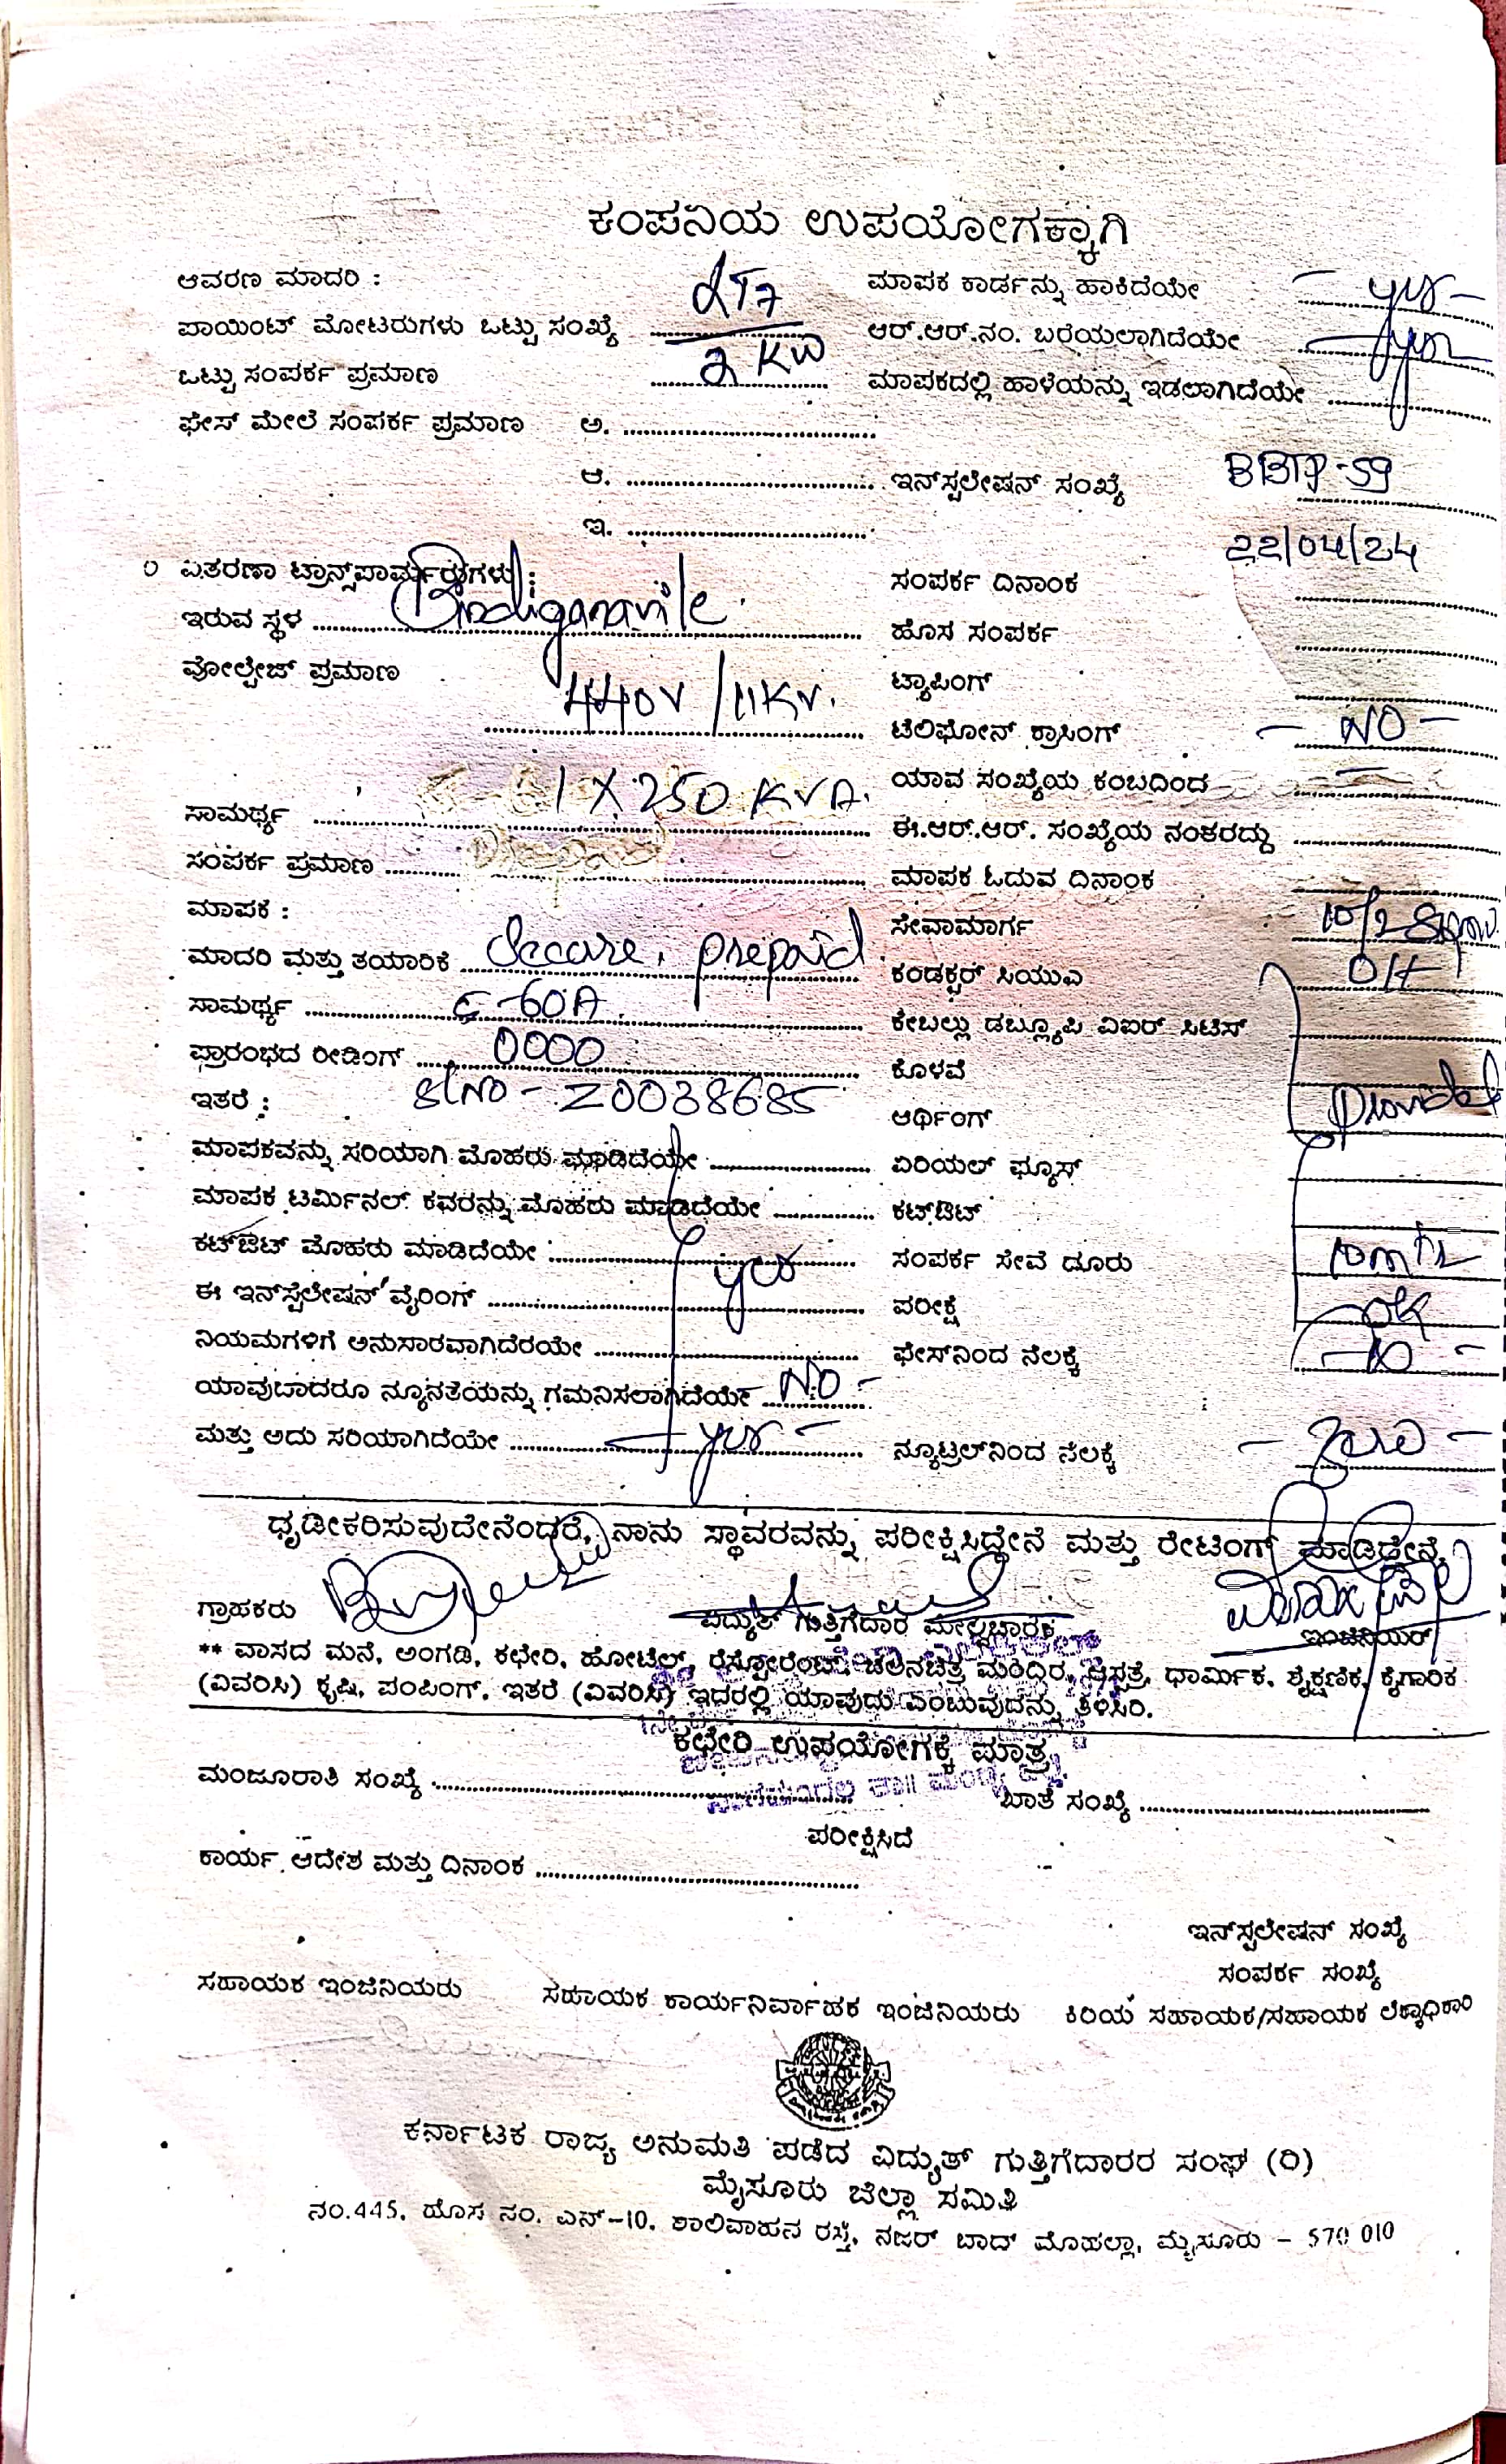 ಕಂಪನಿಯ ಉಪಯೋಗಕ್ಕಾಗಿ
ಆವರಣ ಮಾದರಿ : LT7 ಮಾಪಕ ಕಾರ್ಡನ್ನು ಹಾಕಿದೆಯೇ - yes -
ಪಾಯಿಂಟ್ ಮೋಟರುಗಳು ಒಟ್ಟು ಸಂಖ್ಯೆ ಆರ್.ಆರ್.ನಂ. ಬರೆಯಲಾಗಿದೆಯೇ - yes
ಒಟ್ಟು ಸಂಪರ್ಕ ಪ್ರಮಾಣ 2 KW ಮಾಪಕದಲ್ಲಿ ಹಾಳೆಯನ್ನು ಇಡಲಾಗಿದೆಯೇ
ಫೇಸ್ ಮೇಲೆ ಸಂಪರ್ಕ ಪ್ರಮಾಣ ಅ.
ಆ. ಇನ್‌ಸ್ಪಲೇಷನ್ ಸಂಖ್ಯೆ BBTP-59
ಇ.
ವಿತರಣಾ ಟ್ರಾನ್ಸ್‌ಪಾರ್ಮರುಗಳು : ಸಂಪರ್ಕ ದಿನಾಂಕ 22/04/24
ಇರುವ ಸ್ಥಳ Bindiganavile. ಹೊಸ ಸಂಪರ್ಕ
ವೋಲ್ಟೇಜ್ ಪ್ರಮಾಣ 440V / 11KV. ಟ್ಯಾಪಿಂಗ್
ಟೆಲಿಫೋನ್ ಕ್ರಾಸಿಂಗ್ - NO -
ಯಾವ ಸಂಖ್ಯೆಯ ಕಂಬದಿಂದ -
ಸಾಮರ್ಥ್ಯ 1 X 250 KVA. ಈ.ಆರ್.ಆರ್. ಸಂಖ್ಯೆಯ ನಂತರದ್ದು
ಸಂಪರ್ಕ ಪ್ರಮಾಣ ಮಾಪಕ ಓದುವ ದಿನಾಂಕ
ಮಾಪಕ : ಸೇವಾಮಾರ್ಗ
ಮಾದರಿ ಮತ್ತು ತಯಾರಿಕೆ Secure, prepaid ಕಂಡಕ್ಟರ್ ಸಿಯುಎ OH
ಸಾಮರ್ಥ್ಯ 5-60A ಕೇಬಲ್ಲು ಡಬ್ಲ್ಯೂಪಿ ವಿಐರ್ ಸಿಟಿಸ್
ಪ್ರಾರಂಭದ ರೀಡಿಂಗ್ 0000 ಕೊಳವೆ
ಇತರೆ : SlNo - Z0038685 ಆರ್ಥಿಂಗ್ Provided
ಮಾಪಕವನ್ನು ಸರಿಯಾಗಿ ಮೊಹರು ಮಾಡಿದೆಯೇ ಏರಿಯಲ್ ಫ್ಯೂಸ್
ಮಾಪಕ ಟರ್ಮಿನಲ್ ಕವರನ್ನು ಮೊಹರು ಮಾಡಿದೆಯೇ ಕಟ್‌ಔಟ್
ಕಟ್‌ಔಟ್ ಮೊಹರು ಮಾಡಿದೆಯೇ yes ಸಂಪರ್ಕ ಸೇವೆ ದೂರು 10mtr
ಈ ಇನ್‌ಸ್ಪೆಲೇಷನ್ ವೈರಿಂಗ್ ಪರೀಕ್ಷೆ OK
ನಿಯಮಗಳಿಗೆ ಅನುಸಾರವಾಗಿದೆರಯೇ ಫೇಸ್‌ನಿಂದ ನೆಲಕ್ಕೆ
ಯಾವುದಾದರೂ ನ್ಯೂನತೆಯನ್ನು ಗಮನಿಸಲಾಗಿದೆಯೇ - NO -
ಮತ್ತು ಅದು ಸರಿಯಾಗಿದೆಯೇ - yes - ನ್ಯೂಟ್ರಲ್‌ನಿಂದ ನೆಲಕ್ಕೆ - Zero -
ಧೃಡೀಕರಿಸುವುದೇನೆಂದರೆ, ನಾನು ಸ್ಥಾವರವನ್ನು ಪರೀಕ್ಷಿಸಿದ್ದೇನೆ ಮತ್ತು ರೇಟಿಂಗ್ ಮಾಡಿದ್ದೇನೆ
ಗ್ರಾಹಕರು ವಿದ್ಯುತ್ ಗುತ್ತಿಗೆದಾರ ಮೇಲ್ವಿಚಾರಕ ಇಂಜಿನಿಯರ್
** ವಾಸದ ಮನೆ, ಅಂಗಡಿ, ಕಛೇರಿ, ಹೋಟೆಲ್, ರೆಸ್ಟೋರೆಂಟ್, ಚಲನಚಿತ್ರ ಮಂದಿರ, ಆಸ್ಪತ್ರೆ, ಧಾರ್ಮಿಕ, ಶೈಕ್ಷಣಿಕ, ಕೈಗಾರಿಕ
(ವಿವರಿಸಿ) ಕೃಷಿ, ಪಂಪಿಂಗ್, ಇತರೆ (ವಿವರಿಸಿ) ಇದರಲ್ಲಿ ಯಾವುದು ಎಂಬುವುದನ್ನು ತಿಳಿಸಿರಿ.
ಕಛೇರಿ ಉಪಯೋಗಕ್ಕೆ ಮಾತ್ರ
ಮಂಜೂರಾತಿ ಸಂಖ್ಯೆ ಖಾತೆ ಸಂಖ್ಯೆ
ಪರೀಕ್ಷಿಸಿದೆ
ಕಾರ್ಯ ಆದೇಶ ಮತ್ತು ದಿನಾಂಕ
ಇನ್‌ಸ್ಪಲೇಷನ್ ಸಂಖ್ಯೆ
ಸಂಪರ್ಕ ಸಂಖ್ಯೆ
ಸಹಾಯಕ ಇಂಜಿನಿಯರು ಸಹಾಯಕ ಕಾರ್ಯನಿರ್ವಾಹಕ ಇಂಜಿನಿಯರು ಕಿರಿಯ ಸಹಾಯಕ/ಸಹಾಯಕ ಲೆಕ್ಕಾಧಿಕಾರಿ
ಕರ್ನಾಟಕ ರಾಜ್ಯ ಅನುಮತಿ ಪಡೆದ ವಿದ್ಯುತ್ ಗುತ್ತಿಗೆದಾರರ ಸಂಘ (ರಿ)
ಮೈಸೂರು ಜಿಲ್ಲಾ ಸಮಿತಿ
ನಂ.445, ಹೊಸ ನಂ. ಎನ್-10, ಶಾಲಿವಾಹನ ರಸ್ತೆ, ನಜರ್ ಬಾದ್ ಮೊಹಲ್ಲಾ, ಮೈಸೂರು - 570 010